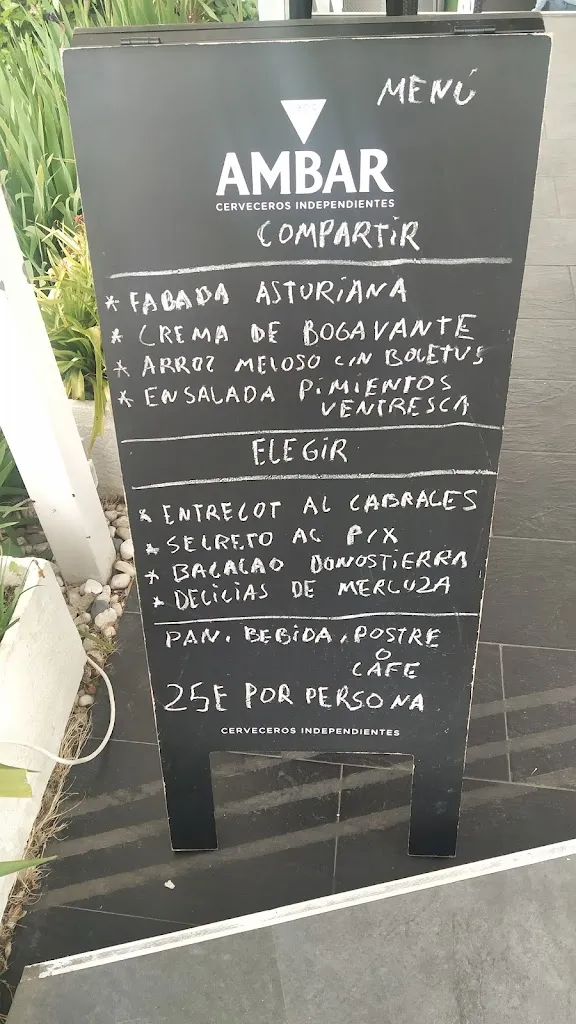 MENÚ
AMBAR
CERVECEROS INDEPENDIENTES
COMPARTIR
* FABADA ASTURIANA
* CREMA DE BOGAVANTE
* ARROZ MELOSO CON BOLETUS
* ENSALADA PIMIENTOS
VENTRESCA
ELEGIR
* ENTRECOT AL CABRALES
* SECRETO AL PIX
* BACALAO DONOSTIERRA
* DELICIAS DE MERLUZA
PAN, BEBIDA, POSTRE
O
CAFE
25€ POR PERSONA
CERVECEROS INDEPENDIENTES